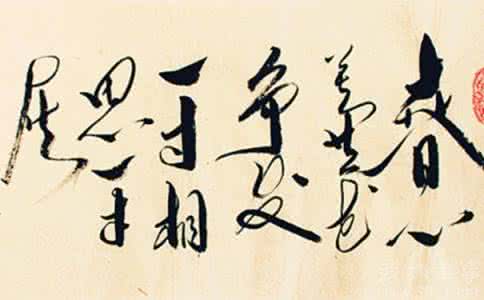 春心
莫共花
争发
一寸相
思一寸
灰